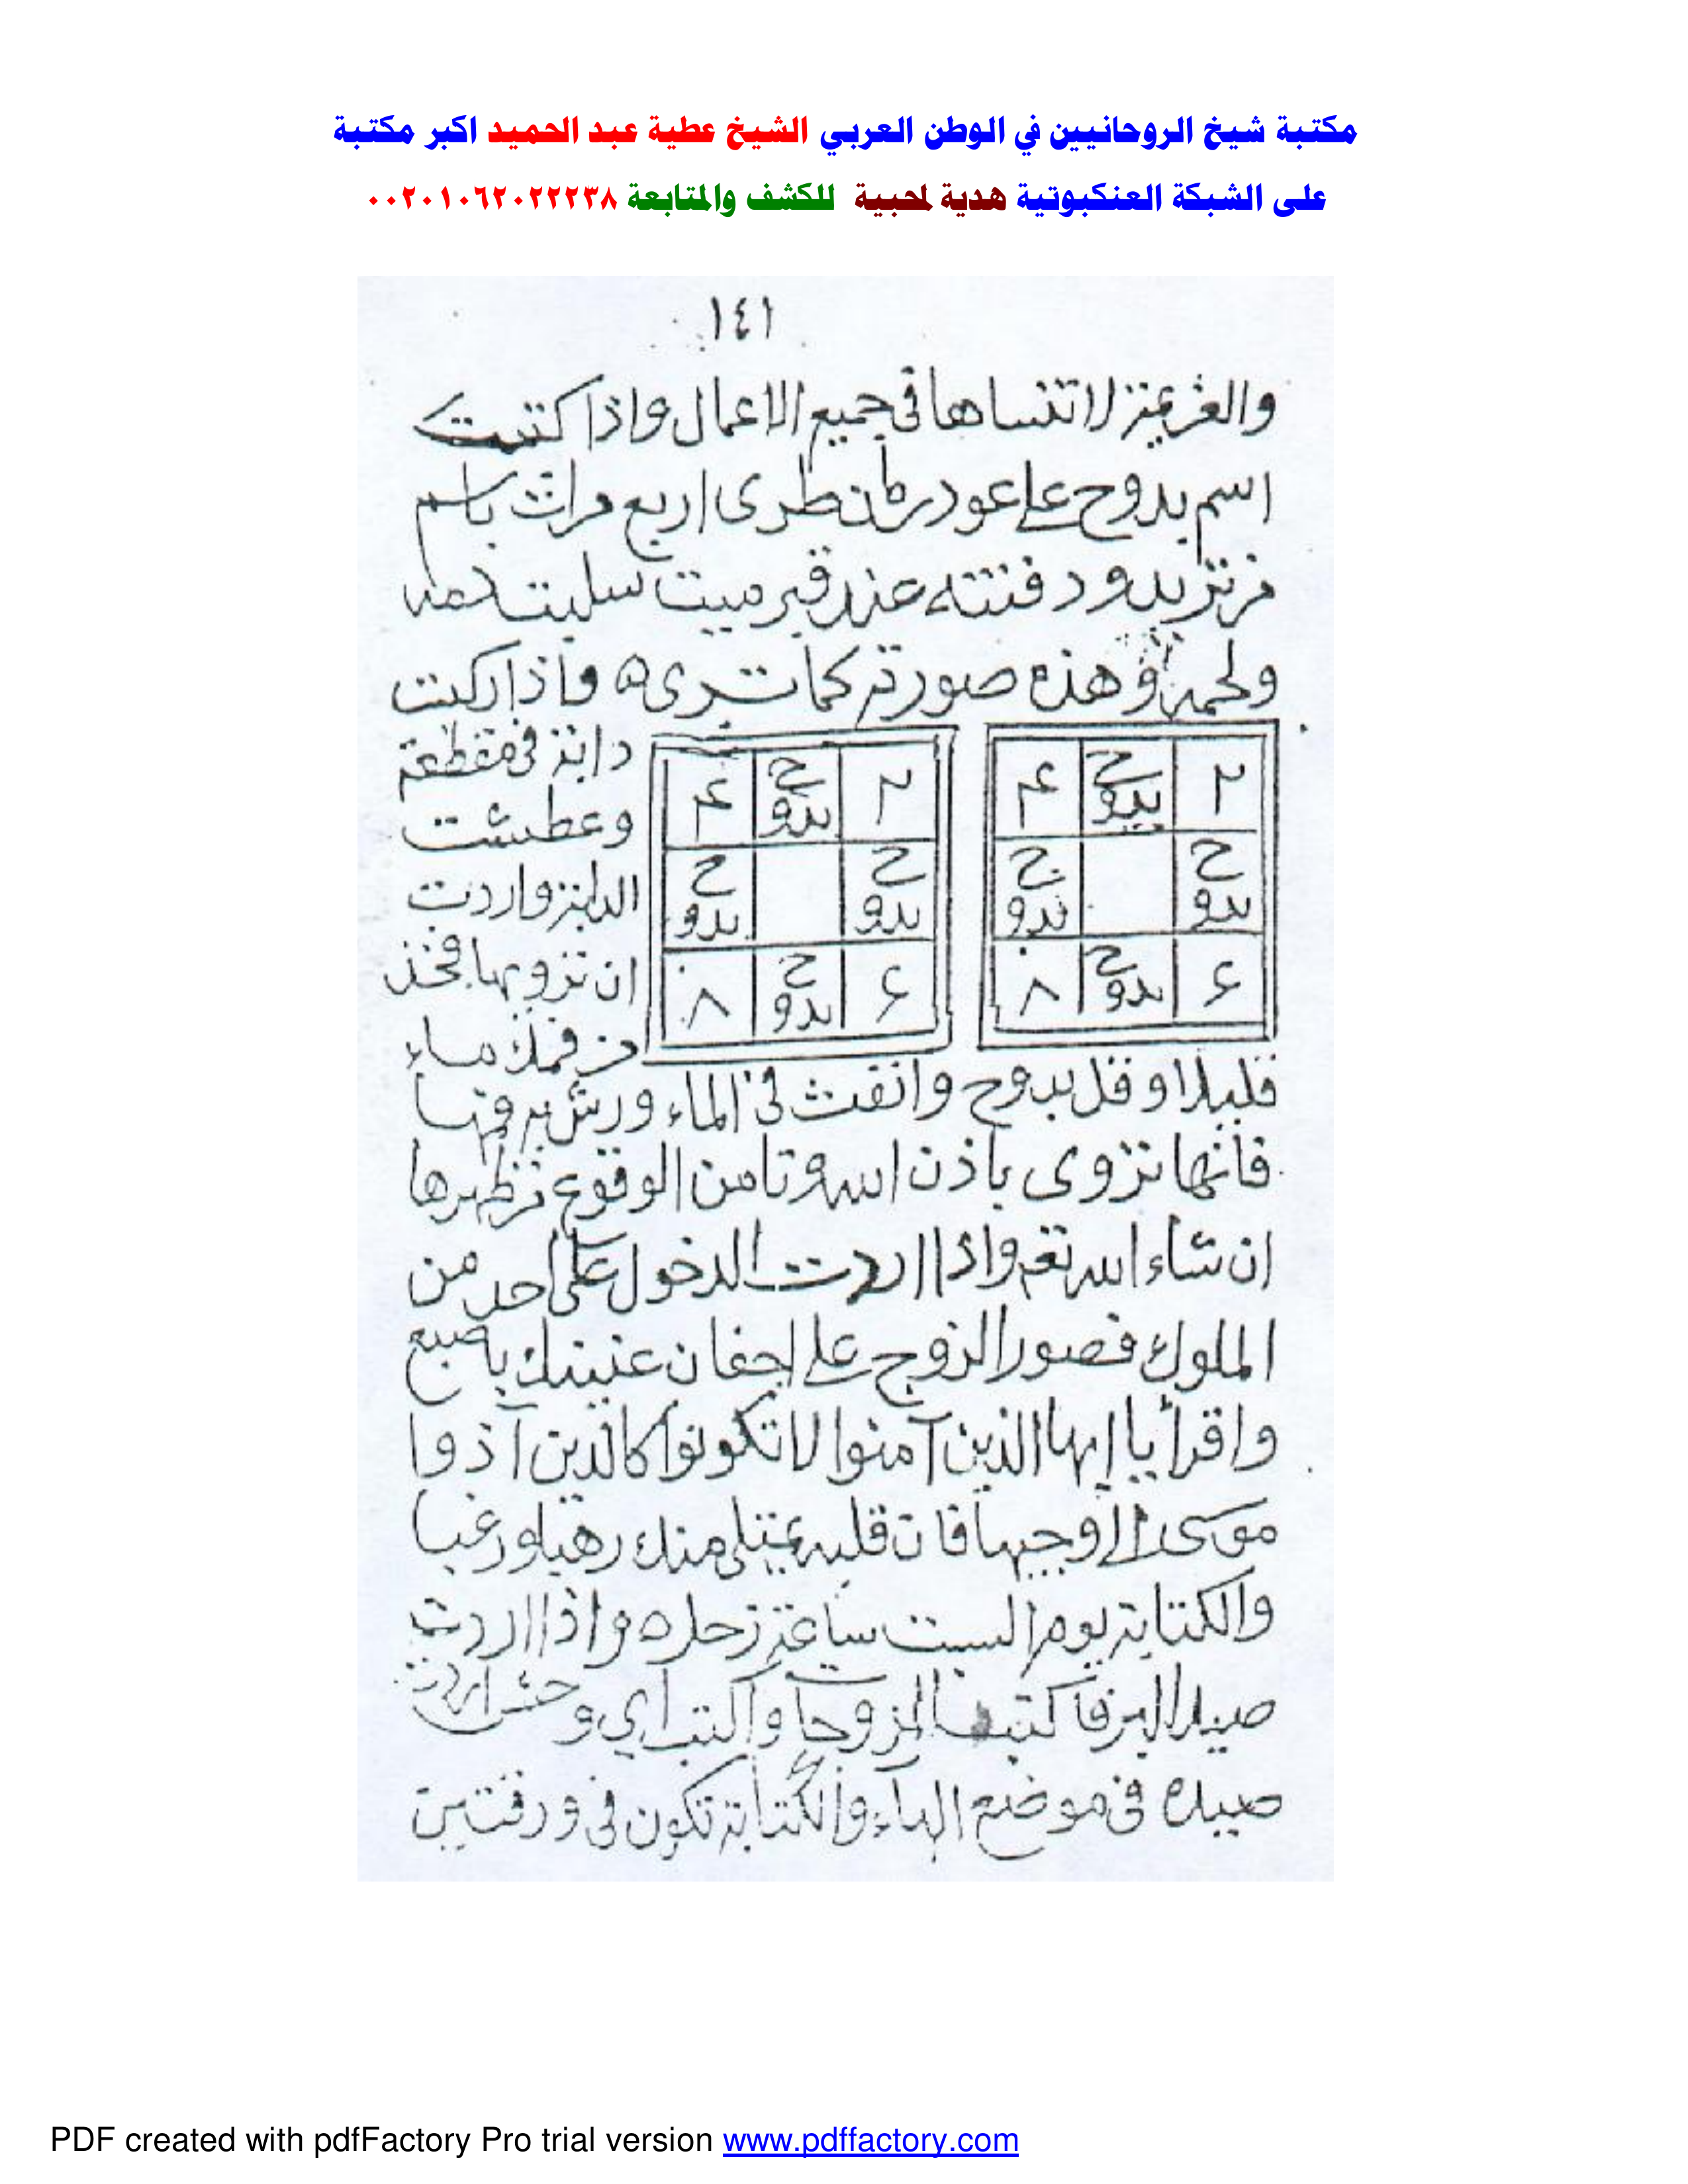 مكتبة شيخ الروحانيين في الوطن العربي الشيخ عطية عبد الحميد اكبر مكتبة
على الشبكة العنكبوتية هدية لمحبية للكشف والمتابعة ٠٠٢٠١٠٦٢٠٢٢٢٣٨
١٤١
والعزيمة لا تنساها في جميع الاعمال واذا كتبت
اسم بدوح على عود رمان طرى اربع مرات باسم
من تريد ودفنته عند قبر ميت سلبت دمه
ولحمه وهذه صورته كما ترى ه واذا ركبت
دابة في مقطعة
وعطشت
الدابة واردت
ان ترويها فخذ
من فمك ماء
٢ بدوح ۴
بدوح بدوح
۶ بدوح ٨
٢ بدوح ۴
بدوح بدوح
۶ بدوح ٨
قليلا وقل بدوح وانفث في الماء ورش به فمها
فانها تروى باذن الله وتامن الوقوع من ظهرها
ان شاء الله تعـ واذا اردت الدخول على احد من
الملوك فصور الزوج على اجفان عينيك باصبع
واقرأ يا ايها الذين آمنوا لا تكونوا كالذين آذوا
موسى الى وجيها فان قلبه يمتلى منك رهبا ورعبا
والكتابة يوم السبت ساعة زحل ه واذا اردت
صيد البر فاكتب المزوجا واكتب اي وحش اردت
صيده في موضع الهاء والكتابة تكون في ورقتين
PDF created with pdfFactory Pro trial version www.pdffactory.com